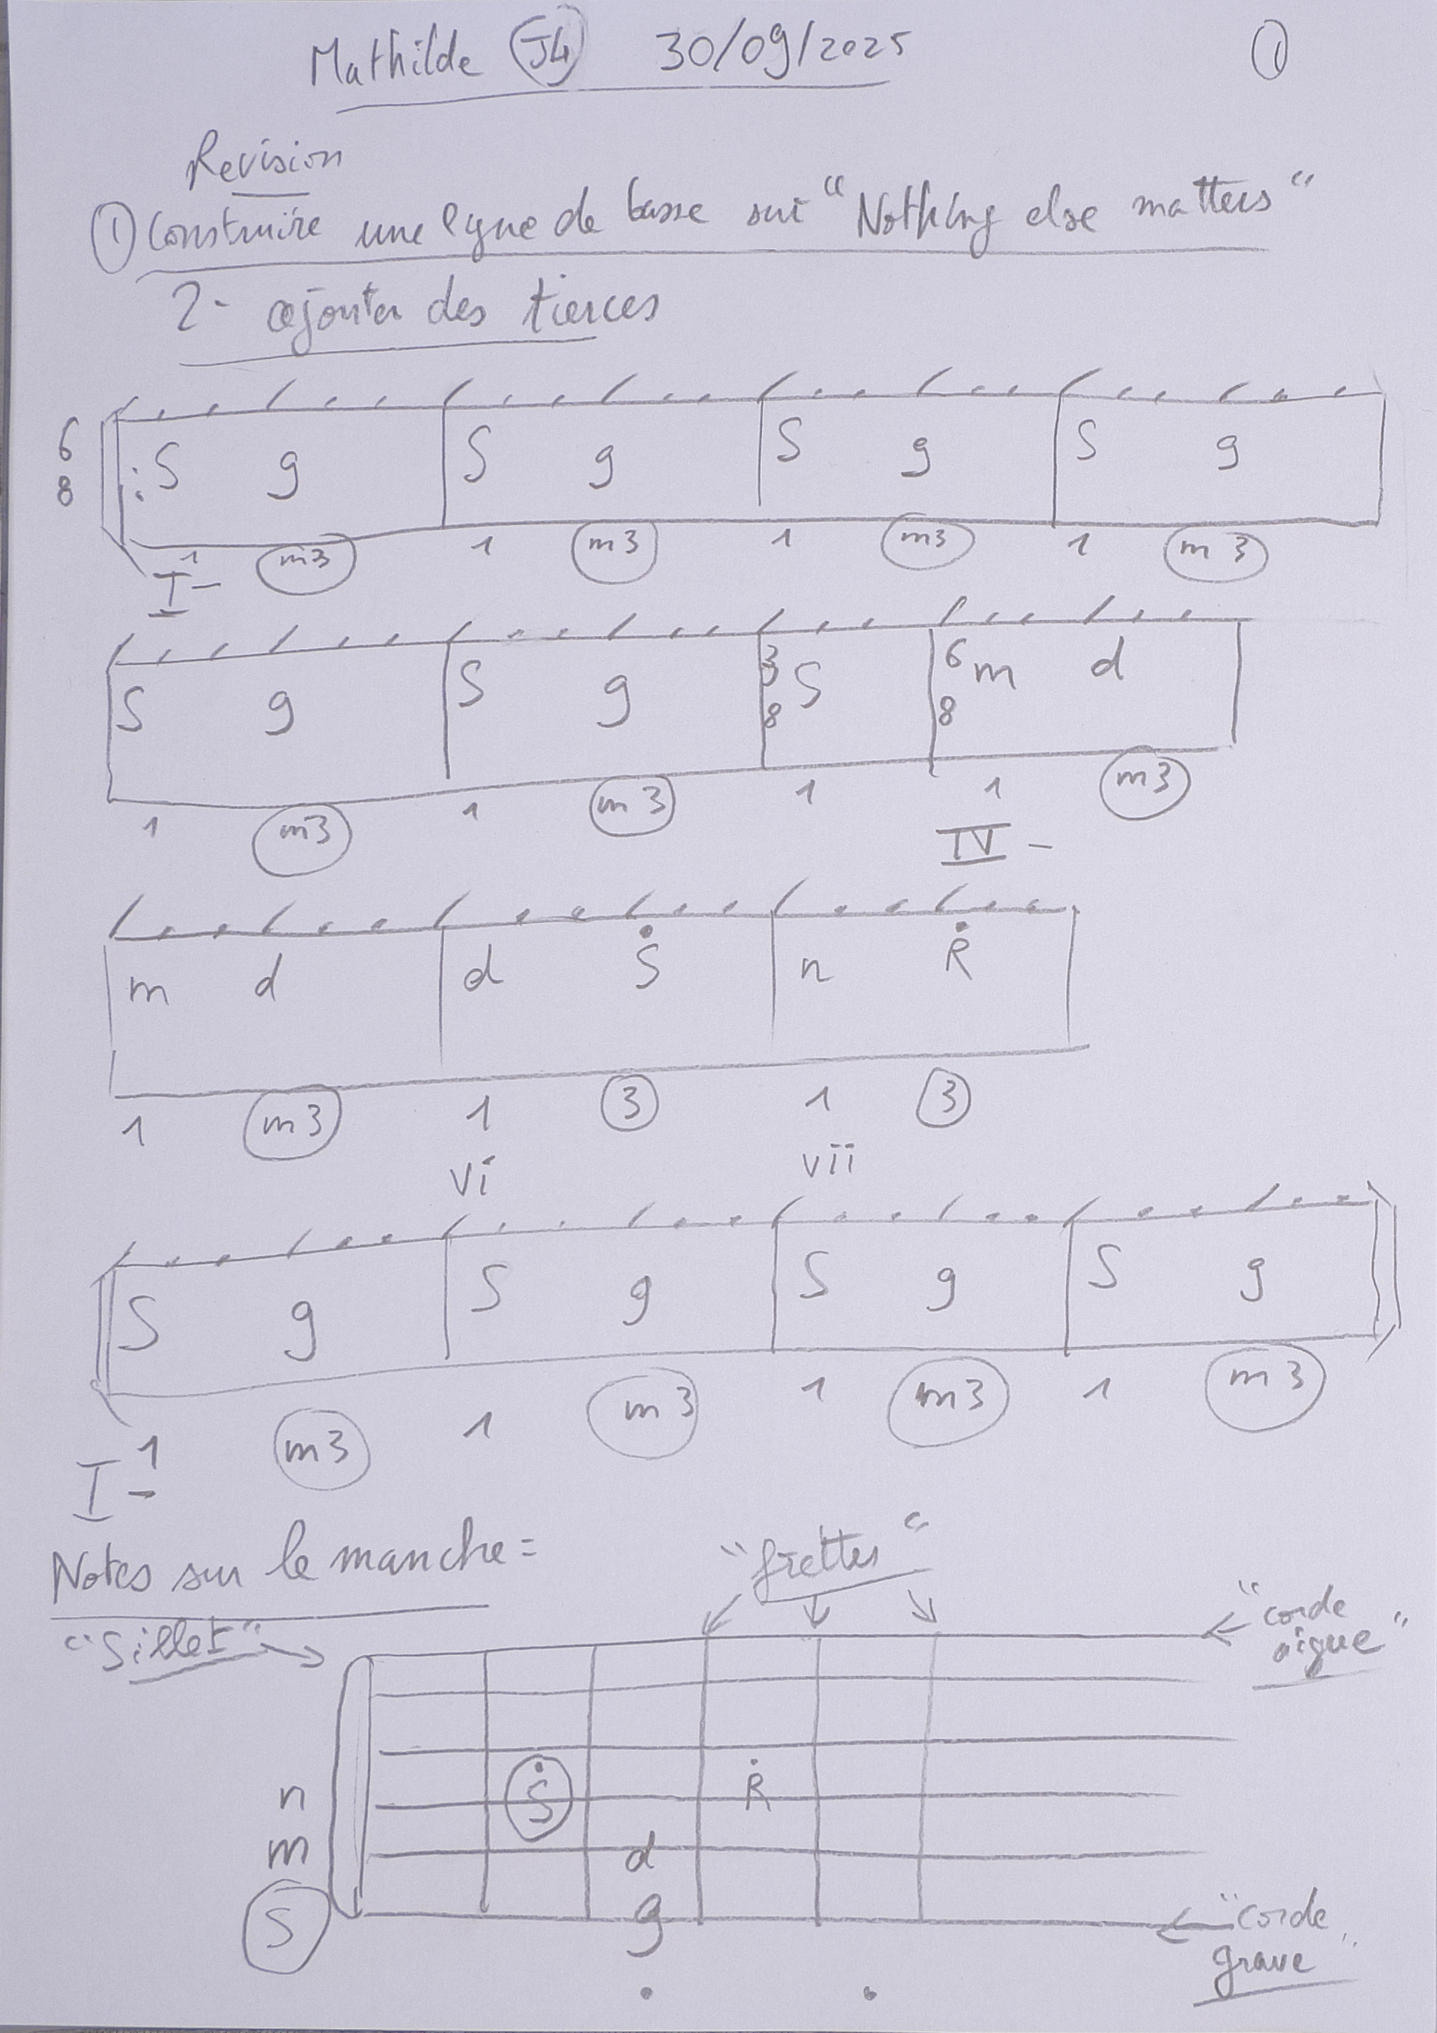 Mathilde J4 30/09/2025 1
Revision
1 Construire une lgne de basse sur "Nothing else matters"
2- ajouter des tierces
6 8 : S g S g S g S g
1 m3 1 m3 1 m3 1 m3
I-
S g S g 3 8 S 6 8 m d
1 m3 1 m3 1 1 m3
IV -
m d d Ṡ n Ṙ
1 m3 1 3 1 3
vi vii
S g S g S g S g
1 m3 1 m3 1 m3 1 m3
I-
Notes sur le manche =
"frettes"
"Sillet"
"corde
aigue"
n Ṡ Ṙ
m d
S g
"corde
grave"